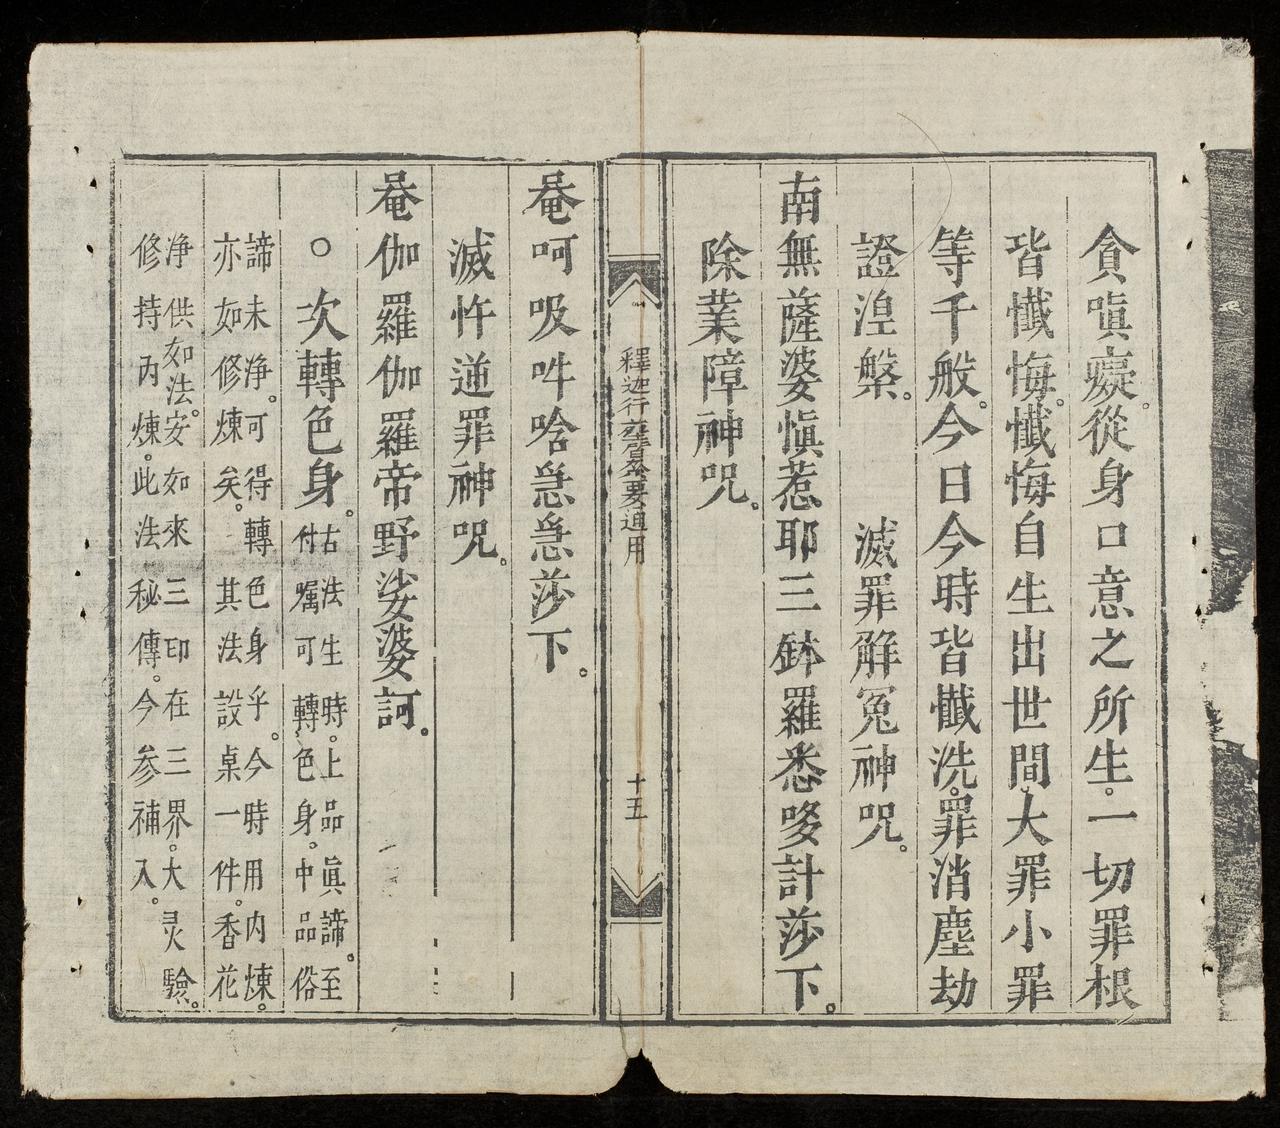 貪嗔癡從身口意之所生。一切罪根
皆懺悔。懺悔自生出世間。大罪小罪
等千般。今日今時皆懺洗。罪消塵劫
證涅槃。 滅罪解冤神咒。
南無薩婆愼惹耶三鉢羅悉哆計莎下。
除業障神咒。
釋迦行 要通用
十五
菴呵吸吽唅惡惡莎下。
滅忤逆罪神咒。
菴伽羅伽羅帝野娑婆訶。
○次轉色身。
古法生時。上品眞諦。至
付囑可轉色身。中品俗
諦未淨。可得轉色身乎。今時用内煉。
亦如修煉矣。其法設桌一件。香花
净供如法。安如來三印在三界。大灵驗。
修持内煉。此法秘傳。今參補入。